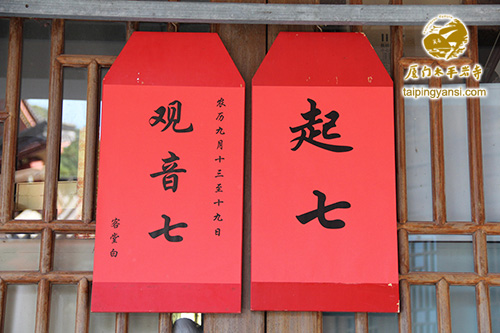 起七
农历九月十三至十九日
观音七
客堂白
厦门太平岩寺
taipingyansi.com